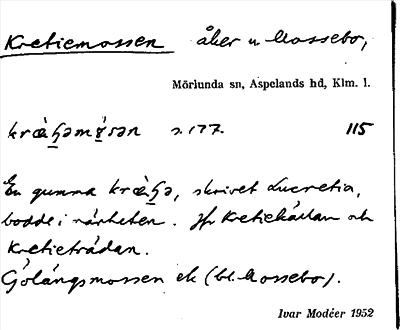 Kretiemossen åker u Mossebo,
Mörlunda sn, Aspelands hd, Klm. l.
s. 177. 115
En gumma skrivet Lucretia,
bodde i närheten. Jfr Kretiekärdan och
Kretieträdan.
Gölängsmossen ek (bl. Mossebo).
Ivar Modéer 1952